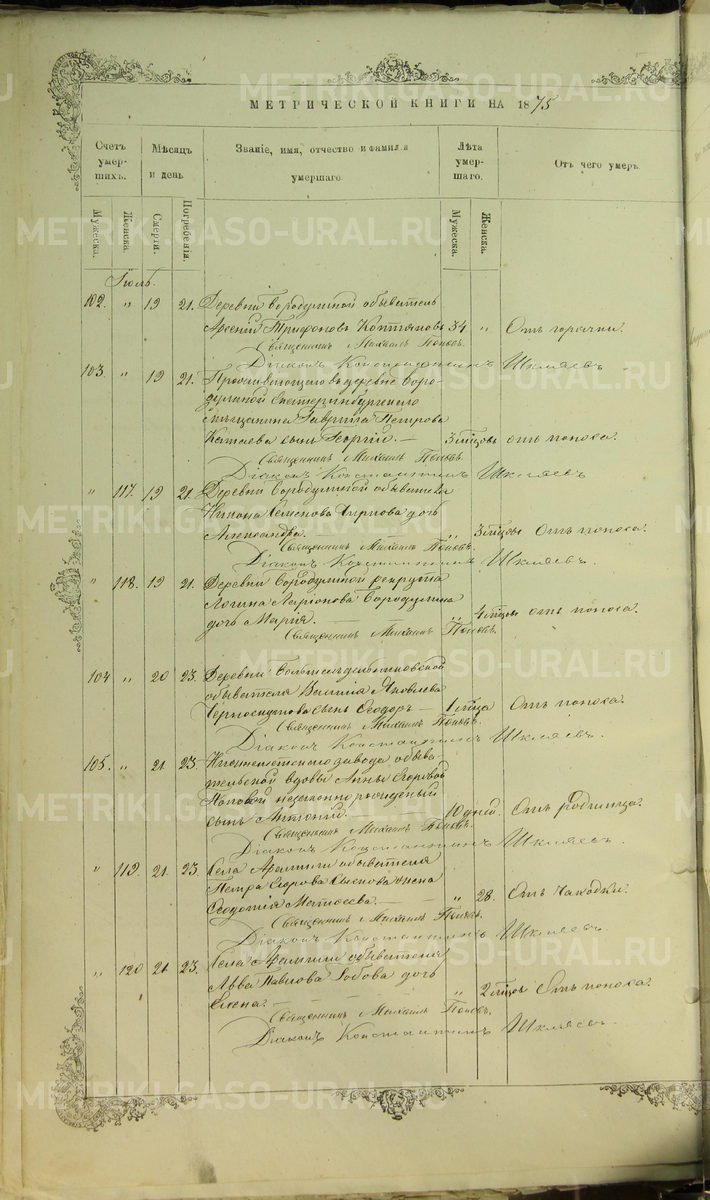 МЕТРИЧЕСКОЙ КНИГИ НА 1875
Счетъ умершихъ.
Мѣсяцъ и день
Званіе, имя, отчество и фамилія умершаго.
Лѣта умершаго.
Отъ чего умеръ.
Мужеска. Женска. Смерти. Погребенія. Мужеска. Женска.
Іюль.
102. " 19 21. Деревни Бородулиной обыватель
Арсеній Трифоновъ 34 " Отъ горячки.
Священникъ Михаилъ Поповъ.
Діаконъ Константинъ Шкляевъ
103. " 19 21. Проживающаго въ деревне Боро-
дулиной Екатеринбургскаго
мѣщанина Гавриила Петрова
Катаева сынъ Георгій. — 3 мѣцовъ отъ поноса.
Священникъ Михаилъ Поповъ
Діаконъ Константинъ Шкляевъ
" 117. 19 21. Деревни Бородулиной обывателя
Семенова дочь
Александра. " 3 мѣцовъ Отъ поноса.
Священникъ Михаилъ Поповъ.
Діаконъ Константинъ Шкляевъ.
" 118. 19 21. Деревни Бородулиной рекрута
Логина Ларіонова Бородулина
дочь Марія. — " 4 мѣцовъ отъ поноса.
Священникъ Михаилъ Поповъ.
104 " 20 23. Деревни
обывателя Василія Яковлева
Черноскутова сынъ Ѳеодоръ — 1 мѣсца Отъ поноса.
Священникъ Михаилъ Поповъ.
Діаконъ Константинъ Шкляевъ.
105. " 21 23. завода обыва-
тельской вдовы Анны Егоровой
Поповой незаконнорожденный
сынъ Антоній. 10 дней. Отъ родимца.
Священникъ Михаилъ Поповъ.
Діаконъ Константинъ Шкляевъ.
" 119. 21. 23. Села Арамили обывателя
Петра жена
Ѳеодотія Матвеева. — " 28. Отъ чахотки.
Священникъ Михаилъ Поповъ.
Діаконъ Константинъ Шкляевъ.
" 120 21 23. Села Арамили обывателя
Льва Павлова дочь
Елена. — " 2 мѣцовъ Отъ поноса.
Священникъ Михаилъ Поповъ.
Діаконъ Константинъ Шкляевъ.
METRIKI.GASO-URAL.RU